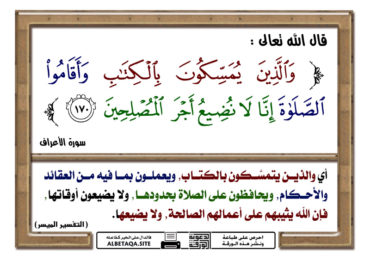 قال الله تعالى :
﴿ وَٱلَّذِينَ يُمَسِّكُونَ بِٱلۡكِتَٰبِ وَأَقَامُواْ
ٱلصَّلَوٰةَ إِنَّا لَا نُضِيعُ أَجۡرَ ٱلۡمُصۡلِحِينَ ١٧٠ ﴾
سورة الأعراف
أي والذين يتمسَّكون بالكتاب, ويعملون بما فيه من العقائد
والأحكام, ويحافظون على الصلاة بحدودها, ولا يضيعون أوقاتها,
فإن الله يثيبهم على أعمالهم الصالحة, ولا يضيعها.
( التفسير الميسر )
احرص على طباعة
ونشر هذه الورقة
الدال على الخير كفاعله
ALBETAQA.SITE